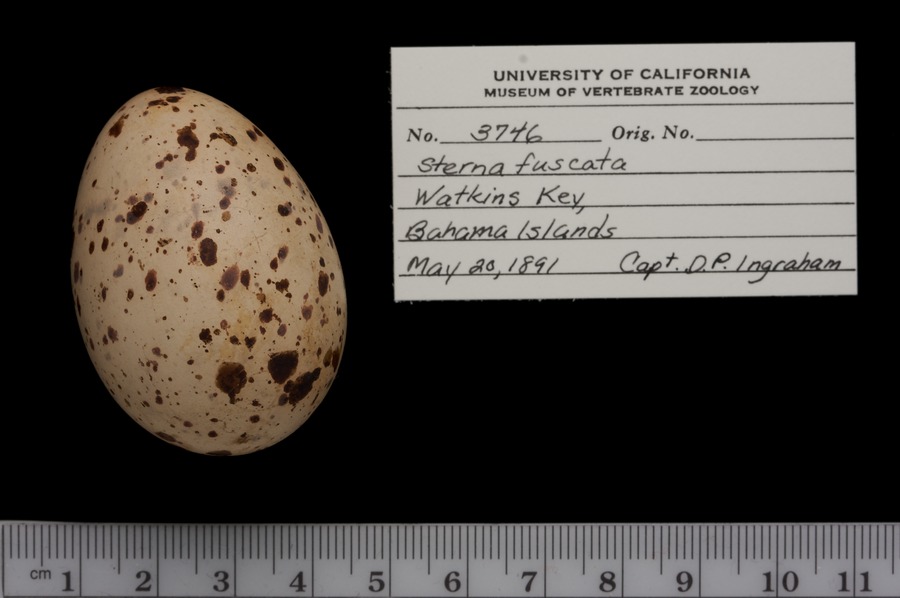 UNIVERSITY OF CALIFORNIA
MUSEUM OF VERTEBRATE ZOOLOGY
No. 3746 Orig. No.
Sterna fuscata
Watkins Key,
Bahama Islands
May 20, 1891 Capt. D.P. Ingraham
cm 1 2 3 4 5 6 7 8 9 10 11